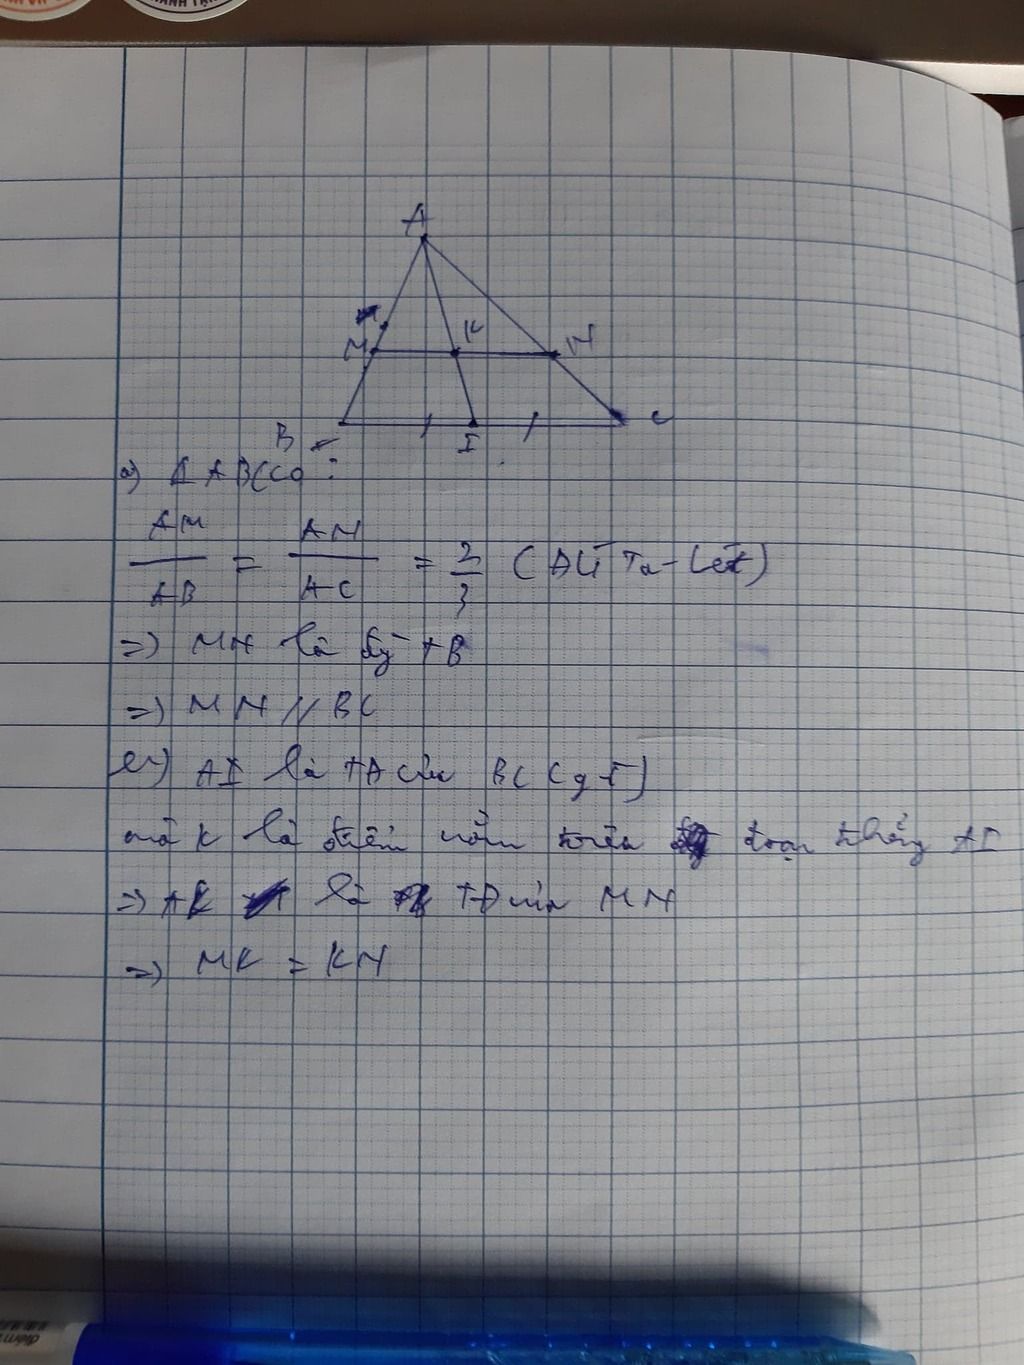 A
M
K
N
B
I
C
a) Δ ABC có :
AM/AB = AN/AC = 2/3 (ĐL Ta-lét)
=) MN là đg TB
=) MN // BC
AI là TĐ của BC (gt)
mà K là điểm nằm trên đoạn thẳng AI
=) AK là TĐ của MN
=) MK = KN